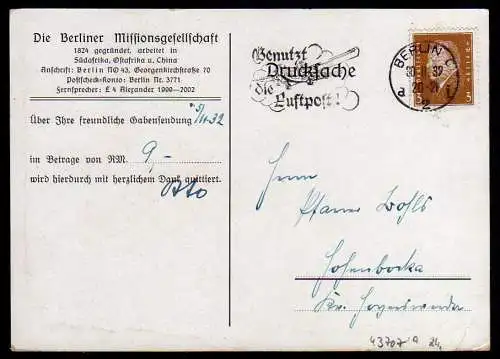 Die Berliner Missionsgesellschaft
1824 gegründet, arbeitet in
Südafrika, Ostafrika u. China
Anschrift: Berlin NO 43, Georgenkirchstraße 70
Postscheck-Konto: Berlin Nr. 3771
Fernsprecher: E 4 Alexander 1999—2002
Über Ihre freundliche Gabensendung
im Betrage von RM. 9,-
wird hierdurch mit herzlichem Dank quittiert.
Benutzt
Drucksache
die
Luftpost!
BERLIN C
20-21
2
3
3
Herrn
Pfarrer Wohls
Hohenbocka
Kr. Hoyerswerda
43707